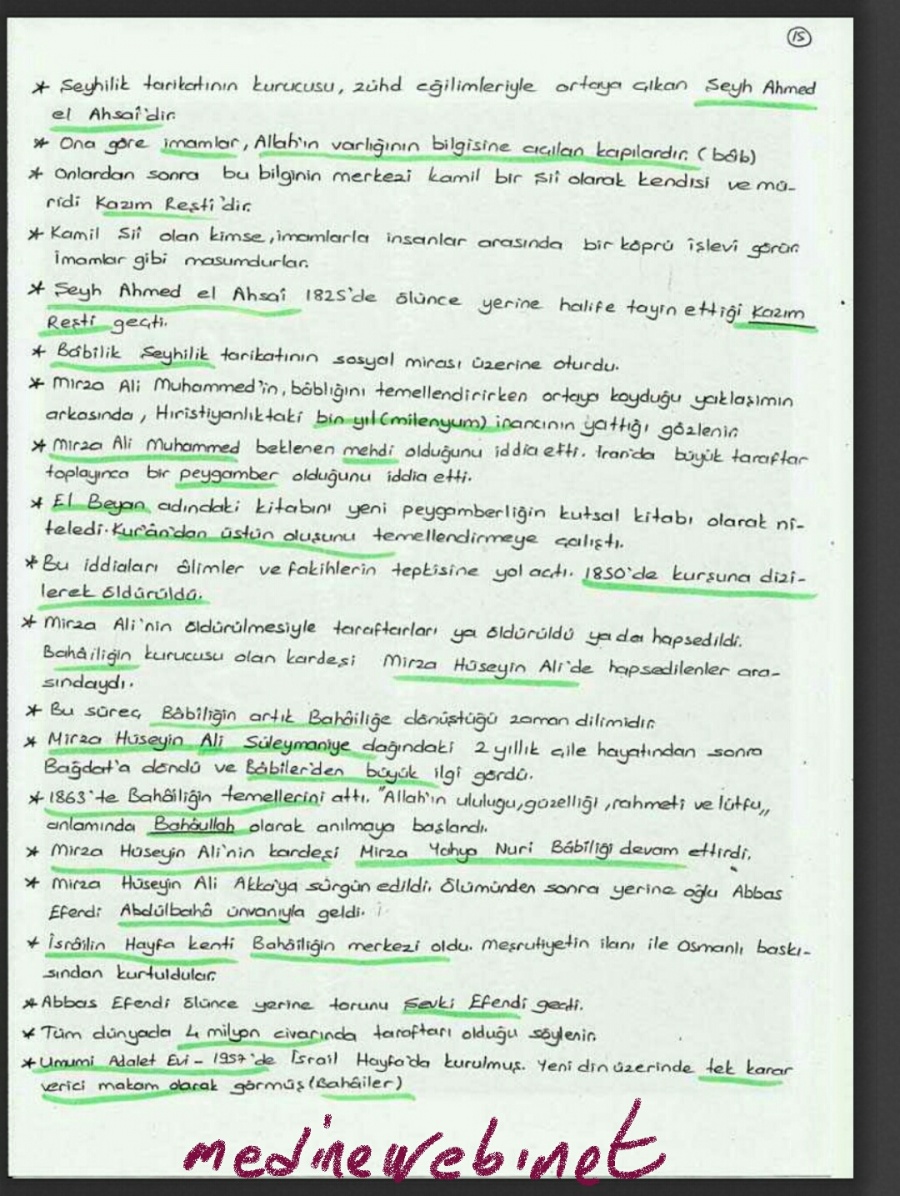 15
* Şeyhilik tarikatının kurucusu, zühd eğilimleriyle ortaya çıkan Şeyh Ahmed
el Ahsaî'dir.
* Ona göre imamlar, Allah'ın varlığının bilgisine açılan kapılardır. (bâb)
* Onlardan sonra bu bilginin merkezi kamil bir şii olarak kendisi ve mü-
ridi Kazım Reşti'dir.
* Kamil Şiî olan kimse, imamlarla insanlar arasında bir köprü işlevi görür.
İmamlar gibi masumdurlar.
* Şeyh Ahmed el Ahsaî 1825'de ölünce yerine halife tayin ettiği Kazım
Reşti geçti.
* Bâbilik Şeyhilik tarikatının sosyal mirası üzerine oturdu.
* Mirza Ali Muhammed'in, bâblığını temellendirirken ortaya koyduğu yaklaşımın
arkasında, Hıristiyanlıktaki bin yıl (milenyum) inancının yattığı gözlenir.
* Mirza Ali Muhammed beklenen mehdi olduğunu iddia etti. İran'da büyük taraftar
toplayınca bir peygamber olduğunu iddia etti.
* El Beyan adındaki kitabını yeni peygamberliğin kutsal kitabı olarak ni-
teledi. Kur'ân'dan üstün oluşunu temellendirmeye çalıştı.
* Bu iddiaları âlimler ve fakihlerin tepkisine yol açtı. 1850'de kurşuna dizi-
lerek öldürüldü.
* Mirza Ali'nin öldürülmesiyle taraftarları ya öldürüldü ya da hapsedildi.
Bahâiliğin kurucusu olan kardeşi Mirza Hüseyin Ali'de hapsedilenler ara-
sındaydı.
* Bu süreç Bâbiliğin artık Bahâiliğe dönüştüğü zaman dilimidir.
* Mirza Hüseyin Ali Süleymaniye dağındaki 2 yıllık çile hayatından sonra
Bağdat'a döndü ve Bâbiler'den büyük ilgi gördü.
* 1863'te Bahâiliğin temellerini attı. "Allah'ın ululugu, güzelliği, rahmeti ve lütfu„
anlamında Bahâullah olarak anılmaya başlandı.
* Mirza Hüseyin Ali'nin kardeşi Mirza Yahya Nuri Bâbiliği devam ettirdi.
* Mirza Hüseyin Ali Akka'ya sürgün edildi. Ölümünden sonra yerine oğlu Abbas
Efendi Abdülbahâ ünvanıyla geldi.
* İsrâilin Hayfa kenti Bahâiliğin merkezi oldu. Meşrutiyetin ilanı ile Osmanlı baskı-
sından kurtuldular.
* Abbas Efendi ölünce yerine torunu Şevki Efendi geçti.
* Tüm dünyada 4 milyon civarında taraftarı olduğu söylenir.
* Umumi Adalet Evi - 1957'de İsrail Hayfa'da kurulmuş. Yeni din üzerinde tek karar
verici makam olarak görmüş (Bahâiler)
medineweb.net